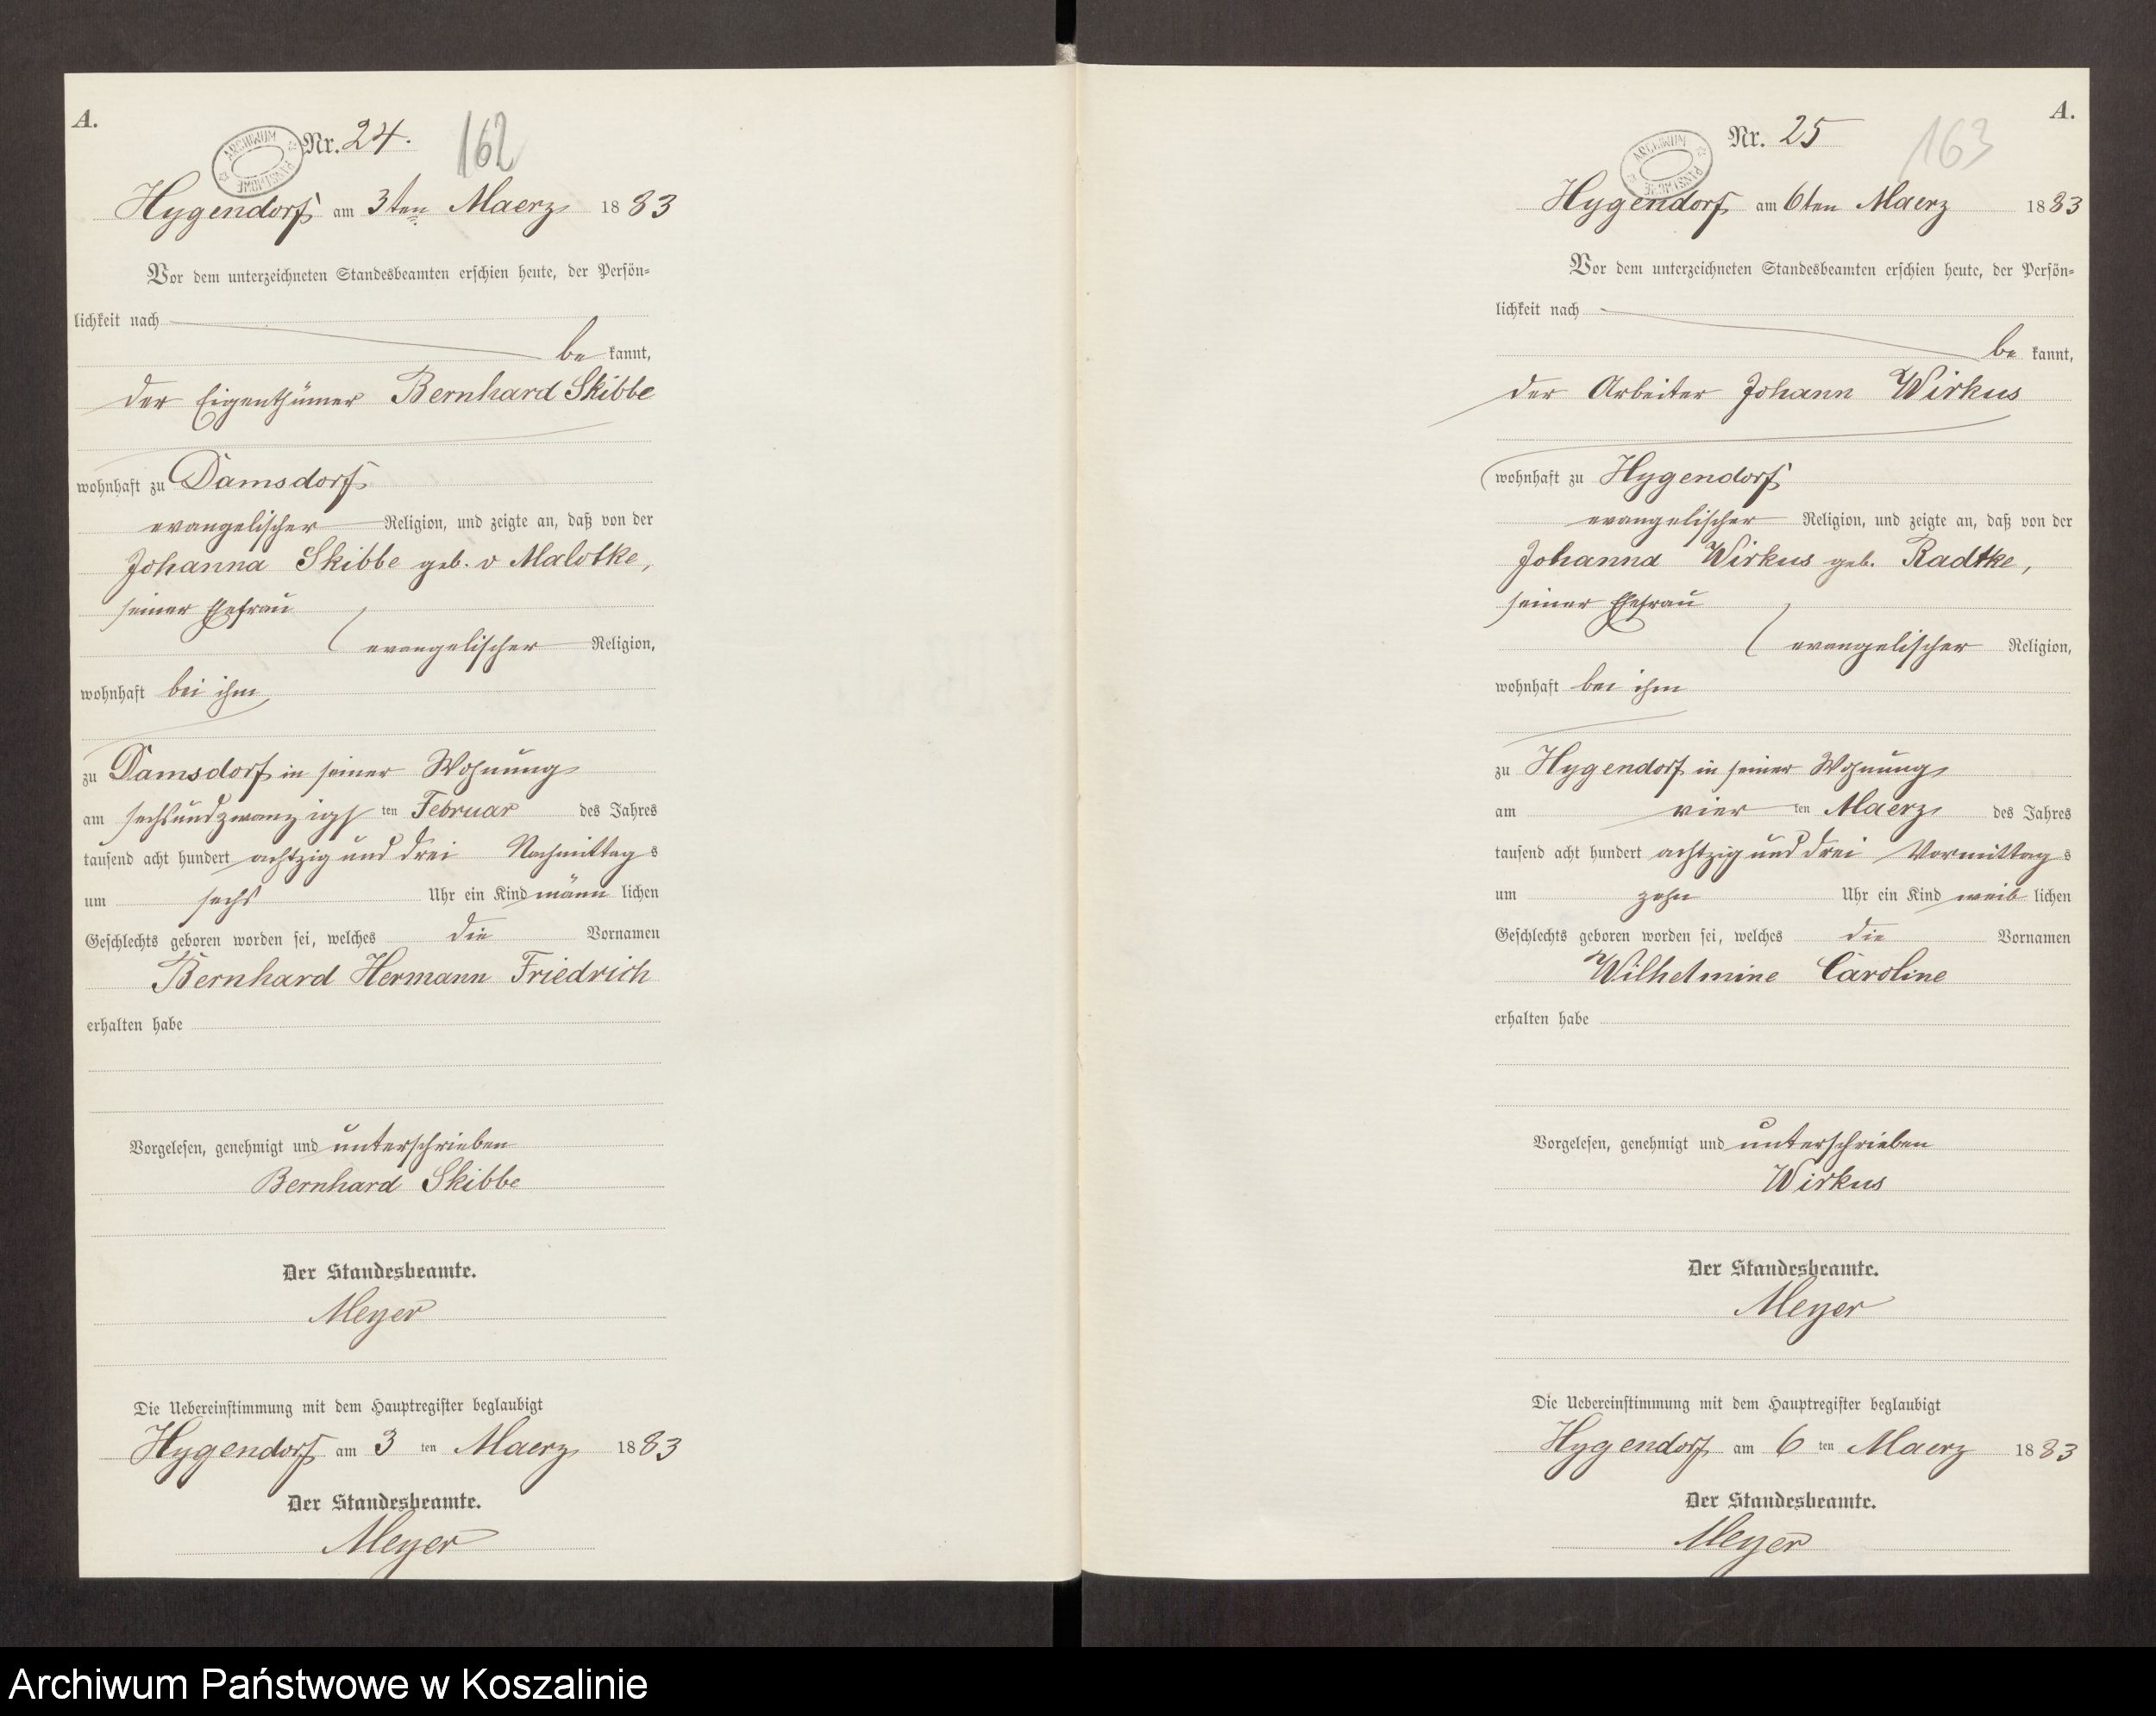 A.
Nr. 24.
162
ARCHIWUM PAŃSTWOWE
Hygendorf am 3ten Maerz 1883
Vor dem unterzeichneten Standesbeamten erschien heute, der Persön=
lichkeit nach
be kannt,
der Eigenthümer Bernhard Skibbe
wohnhaft zu Damsdorf
evangelischer Religion, und zeigte an, daß von der
Johanna Skibbe geb. v Malotke,
seiner Ehefrau
evangelischer Religion,
wohnhaft bei ihm
zu Damsdorf in seiner Wohnung
am sechsundzwanzigs ten Februar des Jahres
tausend acht hundert achtzig und drei Nachmittags
um sechs Uhr ein Kind männ lichen
Geschlechts geboren worden sei, welches die Vornamen
Bernhard Hermann Friedrich
erhalten habe
Vorgelesen, genehmigt und unterschrieben
Bernhard Skibbe
Der Standesbeamte.
Meyer
Die Uebereinstimmung mit dem Hauptregister beglaubigt
Hygendorf am 3 ten Maerz 1883
Der Standesbeamte.
Meyer
A.
Nr. 25
163
ARCHIWUM PAŃSTWOWE
Hygendorf am 6ten Maerz 1883
Vor dem unterzeichneten Standesbeamten erschien heute, der Persön=
lichkeit nach
be kannt,
der Arbeiter Johann Wirkus
wohnhaft zu Hygendorf
evangelischer Religion, und zeigte an, daß von der
Johanna Wirkus geb. Radtke,
seiner Ehefrau
evangelischer Religion,
wohnhaft bei ihm
zu Hygendorf in seiner Wohnung
am vier ten Maerz des Jahres
tausend acht hundert achtzig und drei Vormittags
um zehn Uhr ein Kind weib lichen
Geschlechts geboren worden sei, welches die Vornamen
Wilhelmine Caroline
erhalten habe
Vorgelesen, genehmigt und unterschrieben
Wirkus
Der Standesbeamte.
Meyer
Die Uebereinstimmung mit dem Hauptregister beglaubigt
Hygendorf am 6 ten Maerz 1883
Der Standesbeamte.
Meyer
Archiwum Państwowe w Koszalinie